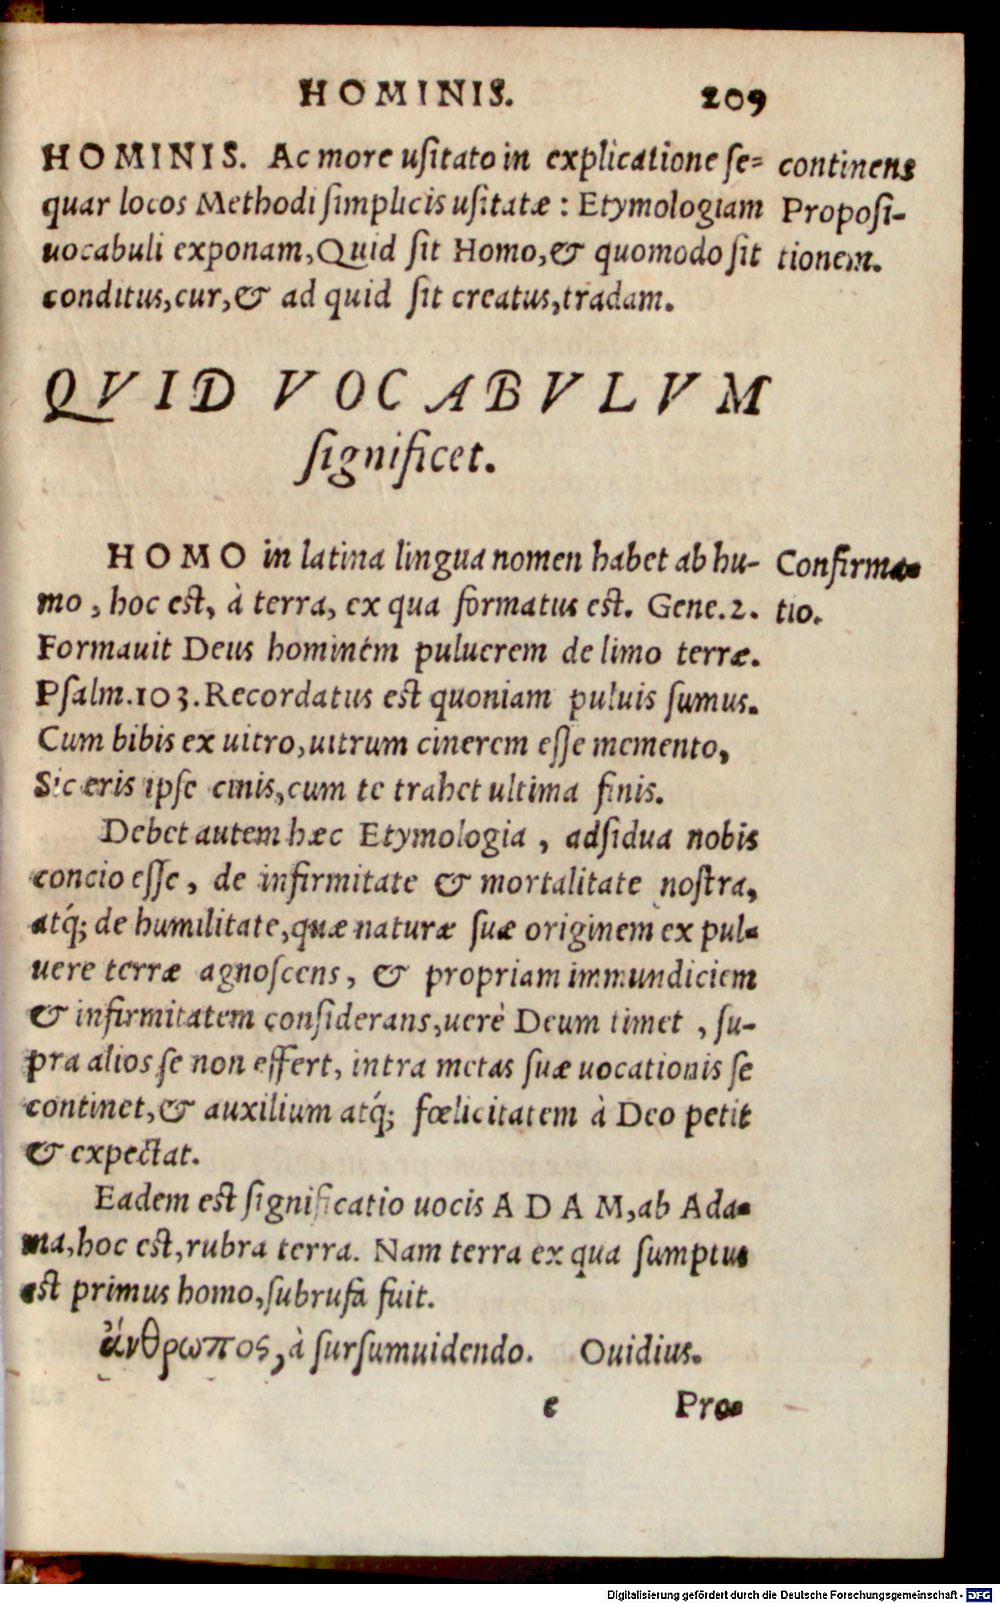 HOMINIS. 209
HOMINIS. Ac more uſitato in explicatione ſe= continens
quar locos Methodi ſimplicis uſitatæ : Etymologiam Propoſi-
uocabuli exponam, Quid ſit Homo, & quomodo ſit tionem.
conditus, cur, & ad quid ſit creatus, tradam.
QVID VOCABVLVM
ſignificet.
HOMO in latina lingua nomen habet ab hu- Confirma=
mo, hoc est, à terra, ex qua formatus est. Gene.2. tio.
Formauit Deus hominem puluerem de limo terræ.
Pſalm.103. Recordatus est quoniam puluis ſumus.
Cum bibis ex uitro, uitrum cinerem eſſe memento,
Sic eris ipſe cinis, cum te trahet ultima finis.
Debet autem hæc Etymologia, adſidua nobis
concio eſſe, de infirmitate & mortalitate noſtra,
atq́; de humilitate, quæ naturæ ſuæ originem ex pul=
uere terræ agnoſcens, & propriam immundiciem
& infirmitatem conſiderans, uerè Deum timet, ſu-
pra alios ſe non effert, intra metas ſuæ uocationis ſe
continet, & auxilium atq́; fœlicitatem à Deo petit
& expectat.
Eadem est ſignificatio uocis ADAM, ab Ada=
ma, hoc est, rubra terra. Nam terra ex qua ſumptus
est primus homo, ſubrufa fuit.
ἄνθρωπος, à ſurſumuidendo. Ouidius.
e Pro=
Digitalisierung gefördert durch die Deutsche Forschungsgemeinschaft - DFG